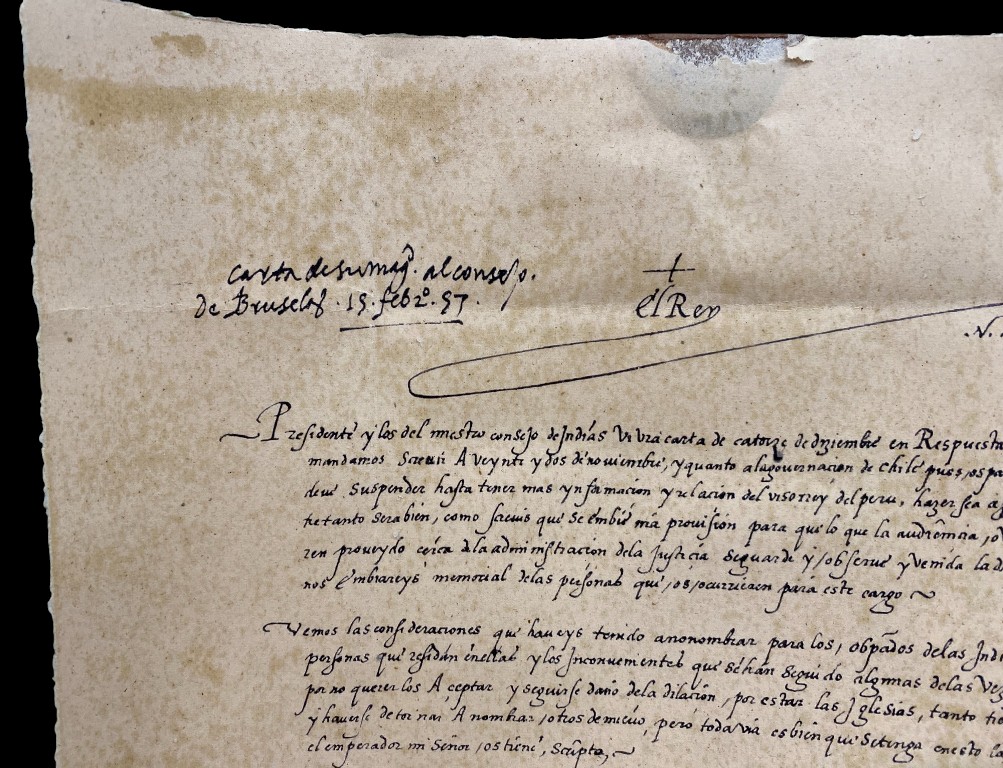 carta de su magd. al consejo.
de Bruselas. 15. febro. 57.
+
el Rey
N.
Presidente y los del nuestro consejo de Indias Vi vra carta de catorze de diziembre en Respuesta
mandamos screuir A veynte y dos de noviembre, y quanto ala governacion de chile pues, os pa
deve suspender hasta tener mas ynformacion y relacion del visorrey del peru, hazer sea a
tretanto sera bien, como screuis que se embie mia provision para que lo que la audiencia, o
ren proveydo cerca dela administracion dela Justicia se guarde y, observe y venida la
nos Embiareys memorial delas personas que, os, ocurrieren para este cargo
Vemos las consideraciones que haveys tenido a nonombrar para los, obpados delas Indi
personas que residan en ellas y los Inconvenientes que se han seguido algunas delas ve
por no querer los Aceptar y seguirse daño dela dilacion, por estar las Iglesias, tanto tie
y haverse de tornar A nombrar, otros de nuevo, pero toda via es bien que se tenga en esto la
el emperador mi Señor, os tiene, scripta,